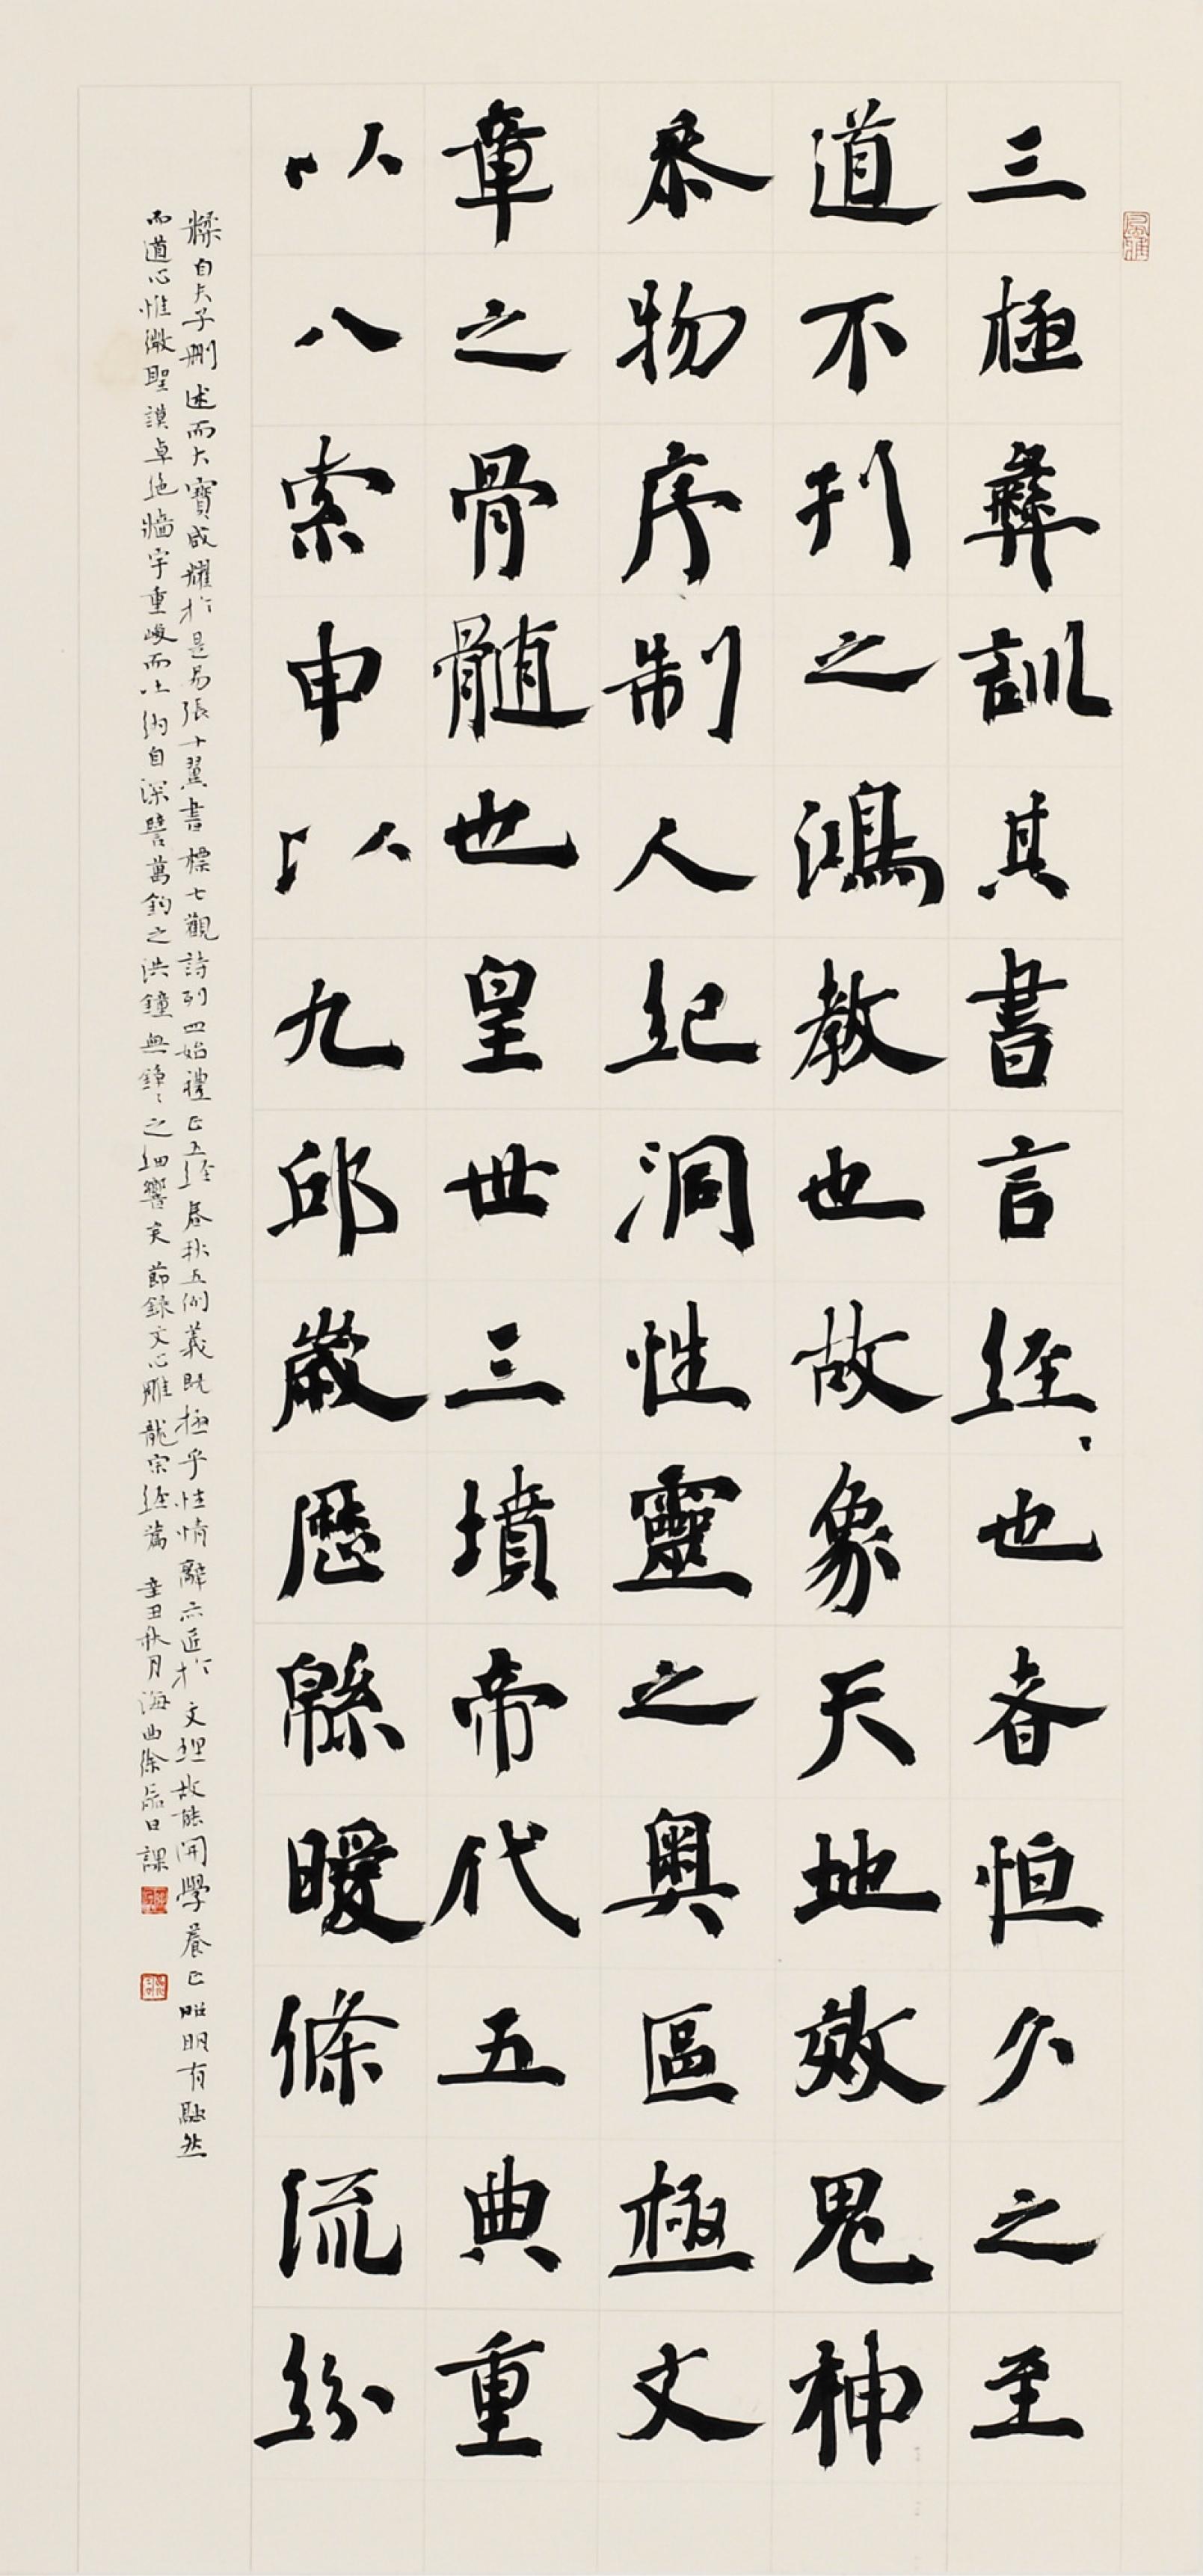 三極彝訓其書言經〻也者恒久之至
道不刊之鴻教也故象天地效鬼神
叅物序制人紀洞性靈之奧區極文
章之骨髓也皇世三墳帝代五典重
以八索申以九邱歲歷緜曖條流紛
糅自夫子刪述而大寶咸耀於是易張十翼書標七觀詩列四始禮正五經春秋五例義既極乎性情辭亦匠於文理故能開學養正昭明有融然
而道心惟微聖謨卓絶牆宇重峻而吐納自深譬萬鈞之洪鐘無錚〻之細響矣節錄文心雕龍宗經篇 辛丑秋月海曲徐日課